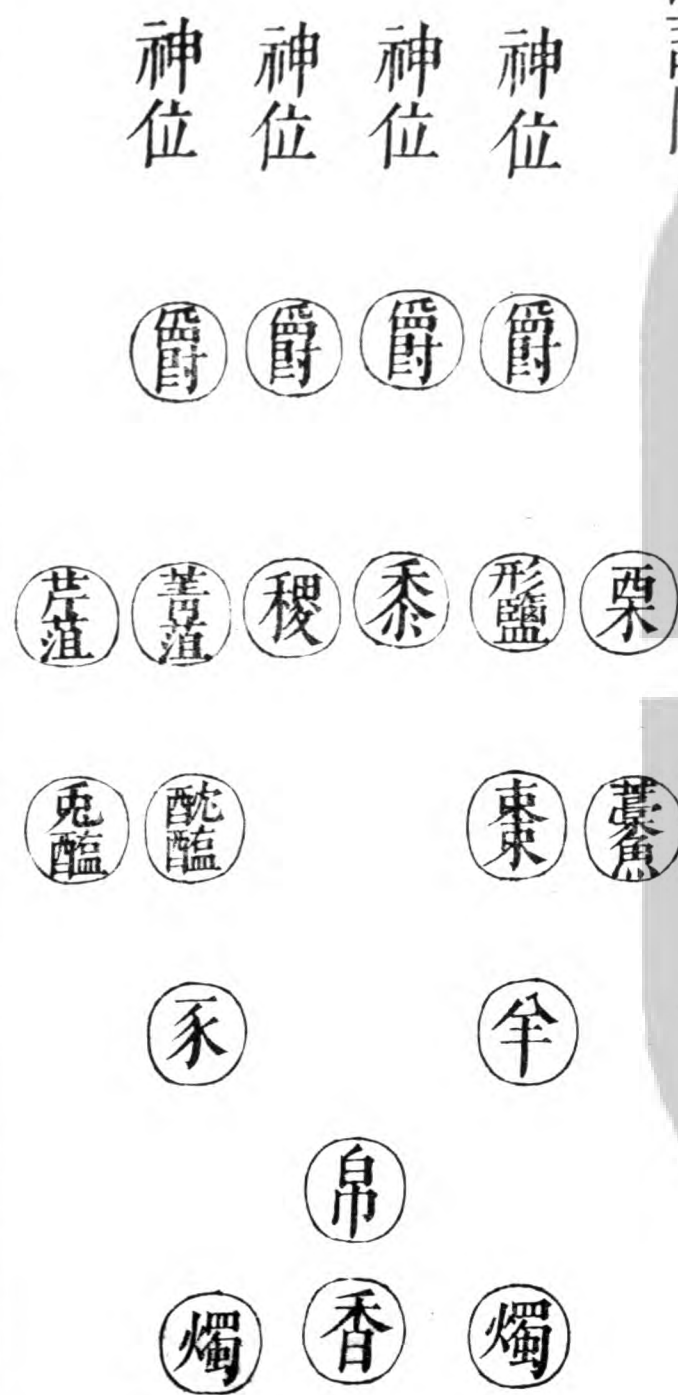 神位 神位 神位 神位
爵 爵 爵 爵
栗 形鹽 黍 稷 菁菹 芹菹
棗 醓醢 兎醢
羊 豕
帛
燭 香 燭